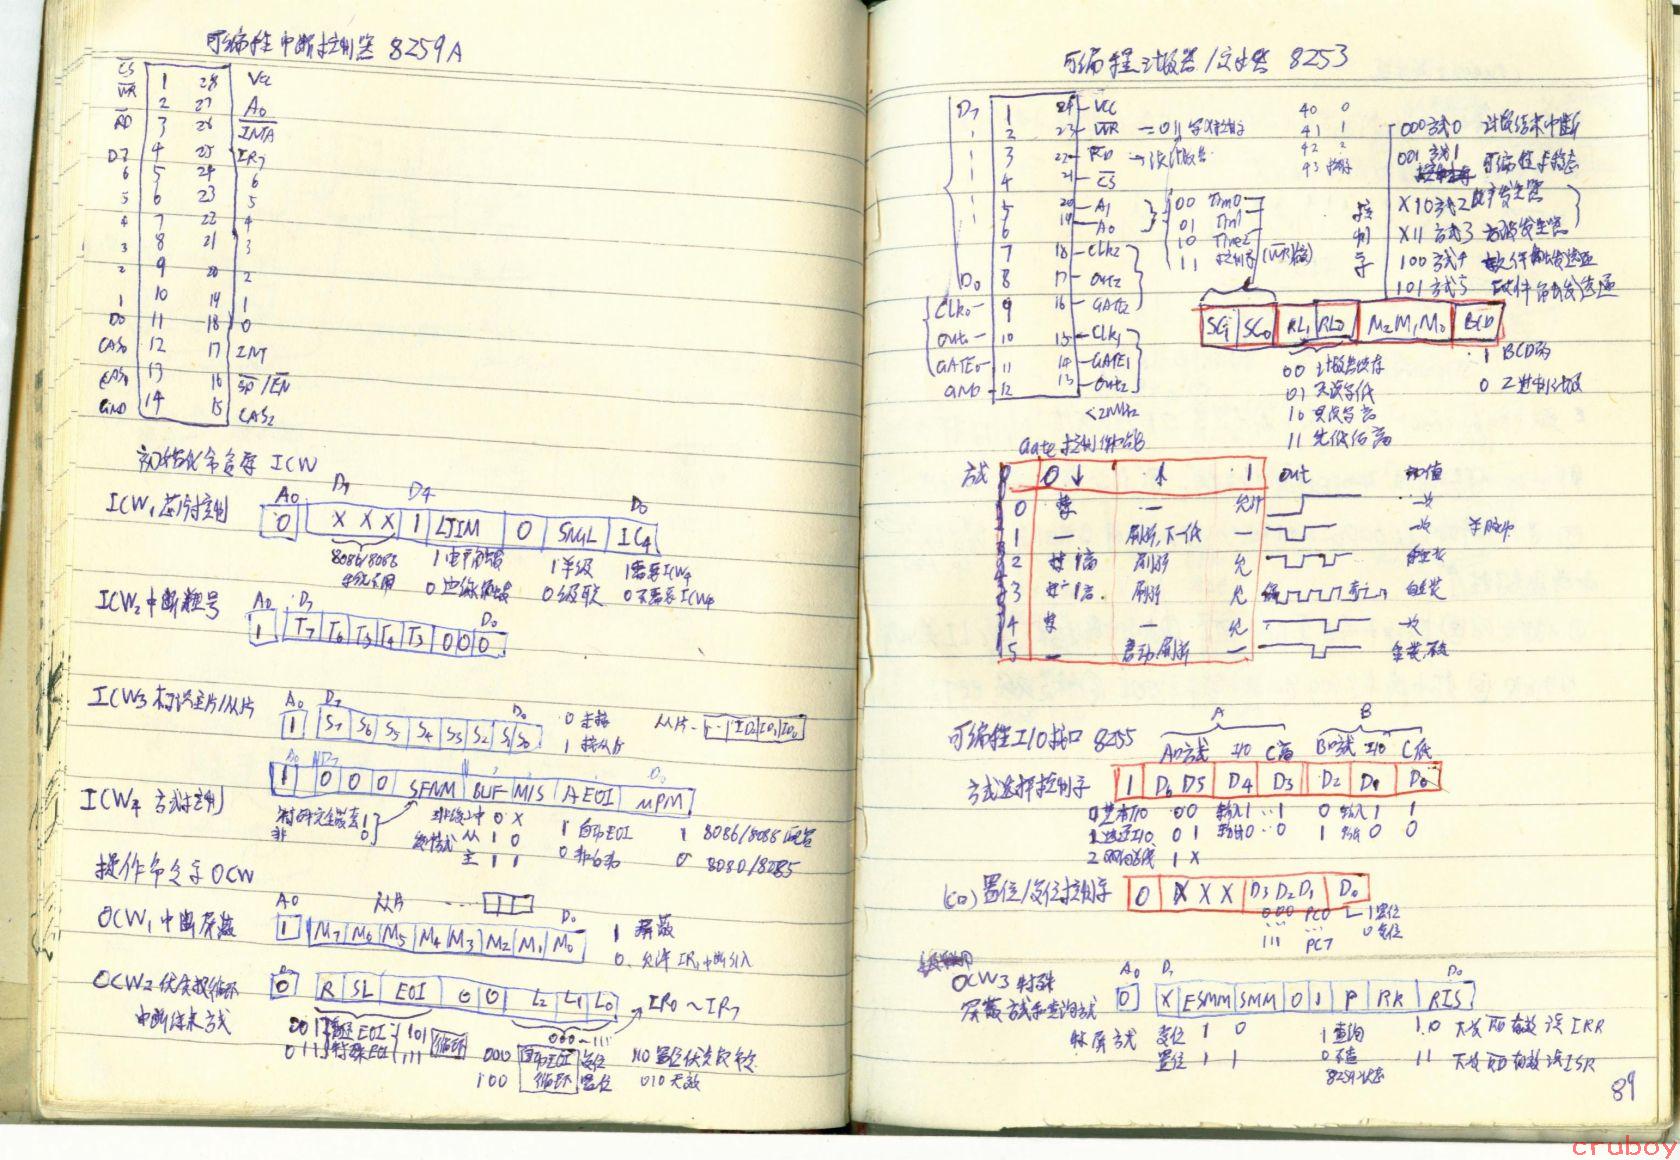 可编程中断控制器 8259A
CS 1 28 Vcc
WR 2 27 A0
RD 3 26 INTA
D7 4 25 IR7
6 5 24 6
5 6 23 5
4 7 22 4
3 8 21 3
2 9 20 2
1 10 19 1
D0 11 18 0
CAS0 12 17 INT
CAS1 13 16 SP/EN
GND 14 15 CAS2
初始化命令字 ICW
A0 D7 D4 D0
ICW1 芯片控制 0 X X X 1 LTIM 0 SNGL IC4
8086/8088 1 电平触发 1 单级 1 需要ICW4
系统不用 0 边缘触发 0 级联 0 不需要ICW4
ICW2 中断类型号 A0 D7 D0
1 T7 T6 T5 T4 T3 0 0 0
ICW3 标识主片/从片 A0 D7 D0
1 S7 S6 S5 S4 S3 S2 S1 S0 0 未接 从片 ID2 ID1 ID0
1 接从片
A0 D7 D0
1 0 0 0 SFNM BUF M/S AEOI μPM
ICW4 方式控制
特殊完全嵌套 1 非缓冲 0 X 1 自动EOI 1 8086/8088 配置
非 0 缓冲方式 从 1 0 0 非自动 0 8080/8085
主 1 1
操作命令字 OCW
A0 从片 D0
OCW1 中断屏蔽 1 M7 M6 M5 M4 M3 M2 M1 M0 1 屏蔽
0 允许 IRi 中断引入
OCW2 优先权循环 0 R SL EOI 0 0 L2 L1 L0 IR0~IR7
中断结束方式 000~111
001 普通EOI 101 循环
011 特殊EOI 111
000 自动EOI 复位 110 置位优先权命令
100 循环 置位 010 无效
可编程计数器/定时器 8253
D7 1 24 VCC 40 0
2 23 WR 41 1
3 22 RD 42 2
4 21 CS 43
5 20 A1
6 19 A0
7 18 CLK2
D0 8 17 OUT2
CLK0 9 16 GATE2
OUT 10 15 CLK1
GATE0 11 14 GATE1
GND 12 13 OUT2
<2MHz
00 Tim0
01 Tim1
10 Time2
11 控制字
控制字
000 方式0 计数结束中断
001 方式1 可编程单稳态
X10 方式2 频率发生器
X11 方式3 方波发生器
100 方式4 软件触发选通
101 方式5 硬件触发选通
SC1 SC0 RL1 RL0 M2 M1 M0 BCD
00 计数器锁存 1 BCD码
01 只读写低 0 二进制计数
10 只读写高
11 先低后高
Gate 控制作用
方式 0 ↓ ↑ 1 out 初值
0 禁 — 允许 一次
1 — 刷新,下一低 — 一次 单脉冲
2 刷新 允 自重装
3 刷新 允 自重装
4 禁 — 允 一次
5 — 启动,刷新 —
可编程I/O接口 8255 A B
A口方式 I/O C高 B口方式 I/O C低
方式选择控制字 1 D6 D5 D4 D3 D2 D1 D0
0 基本I/O 00 输入 1 1 0 输入 1 1
1 选通I/O 01 输出 0 0 1 输出 0 0
2 双向总线 1X
(C口) 置位/复位控制字 0 X X X D3 D2 D1 D0
000 PC0 1 置位
111 PC7 0 复位
OCW3 特殊 A0 D7 D0
屏蔽方式和查询方式 0 X ESMM SMM 0 1 P RR RIS
特屏方式 复位 1 0 1 查询 10 下次RD有效读IRR
置位 1 1 0 不查 11 下次RD有效读ISR
8259状态
89
cruboy